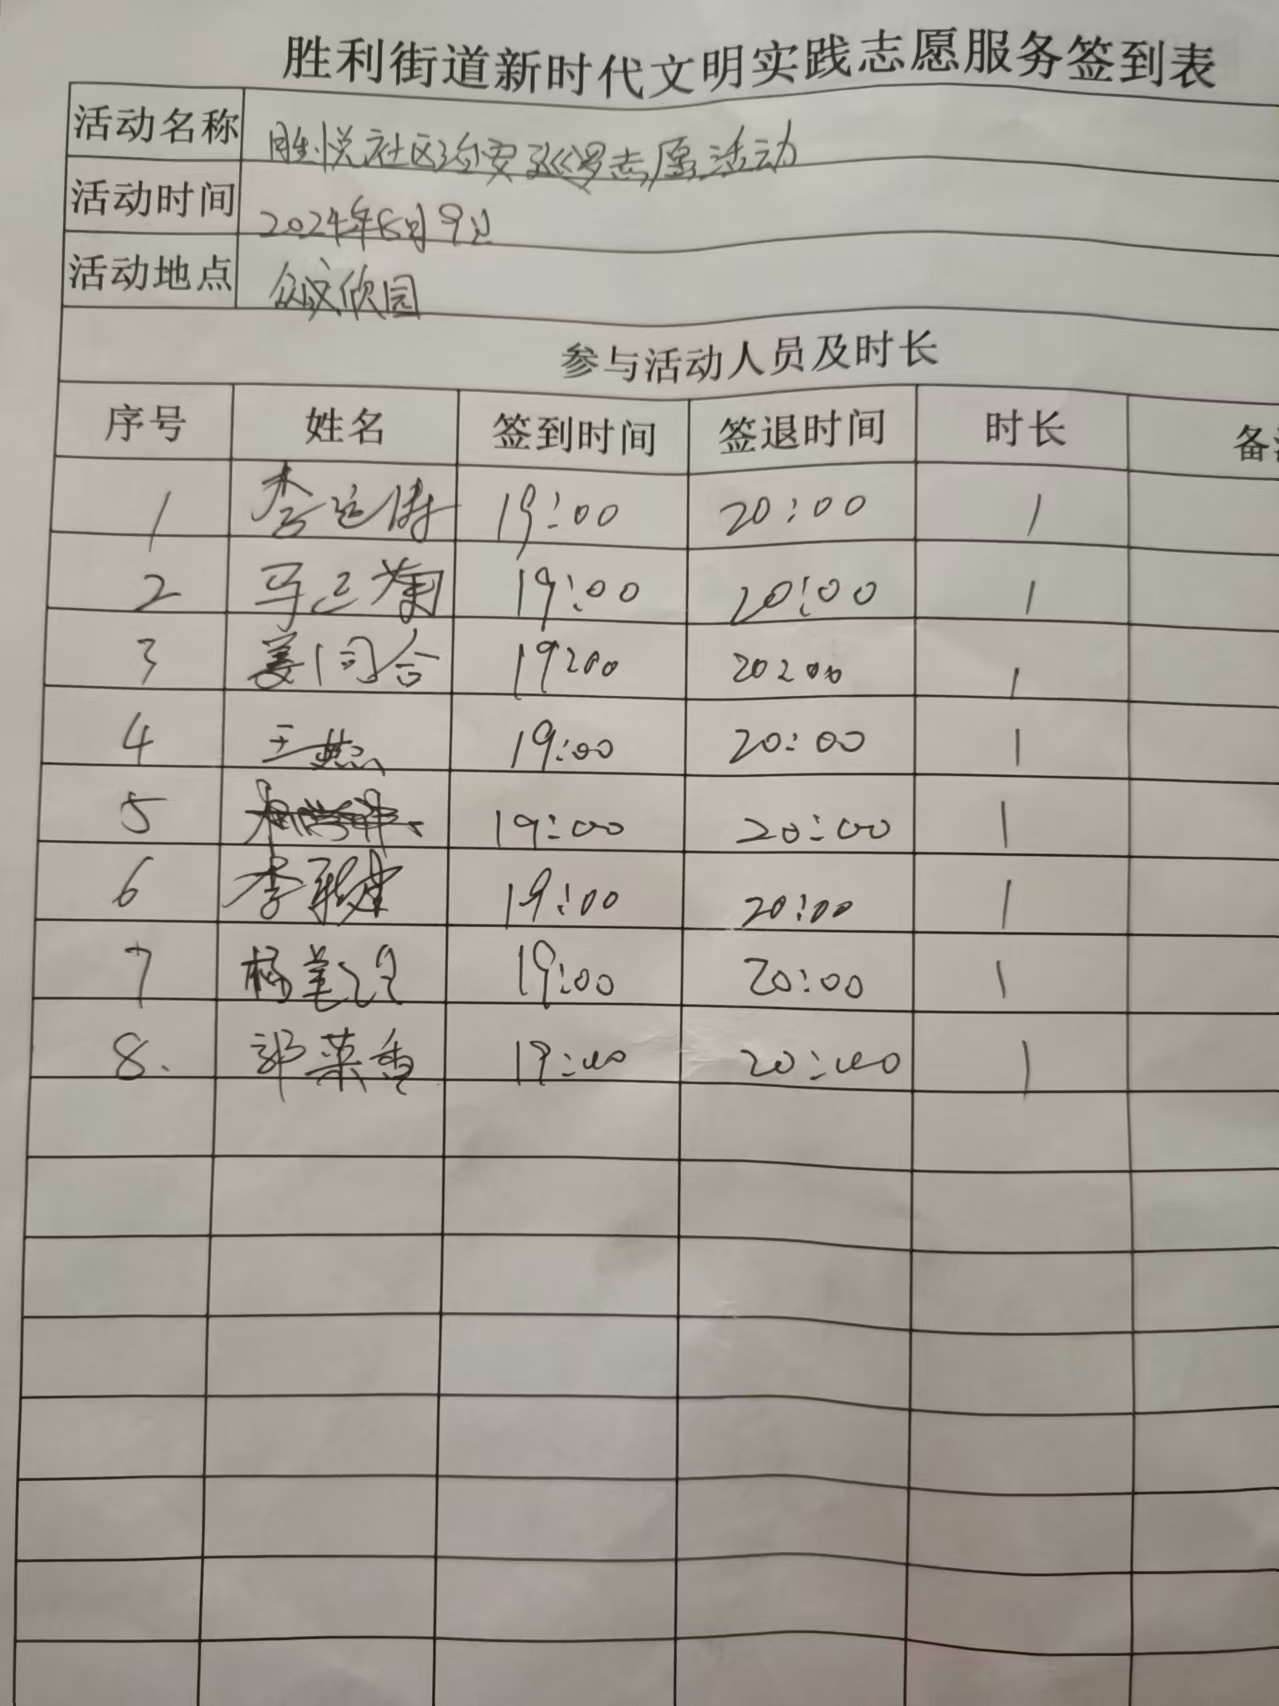 胜利街道新时代文明实践志愿服务签到表
活动名称 胜悦社区治安巡逻志愿活动
活动时间 2024年8月9日
活动地点 欣园
参与活动人员及时长
序号 姓名 签到时间 签退时间 时长 备
1 李 19:00 20:00 1
2 马 19:00 20:00 1
3 姜同合 19:00 20:00 1
4 王燕 19:00 20:00 1
5 19:00 20:00 1
6 李 19:00 20:00 1
7 杨 19:00 20:00 1
8. 郭菜香 19:00 20:00 1